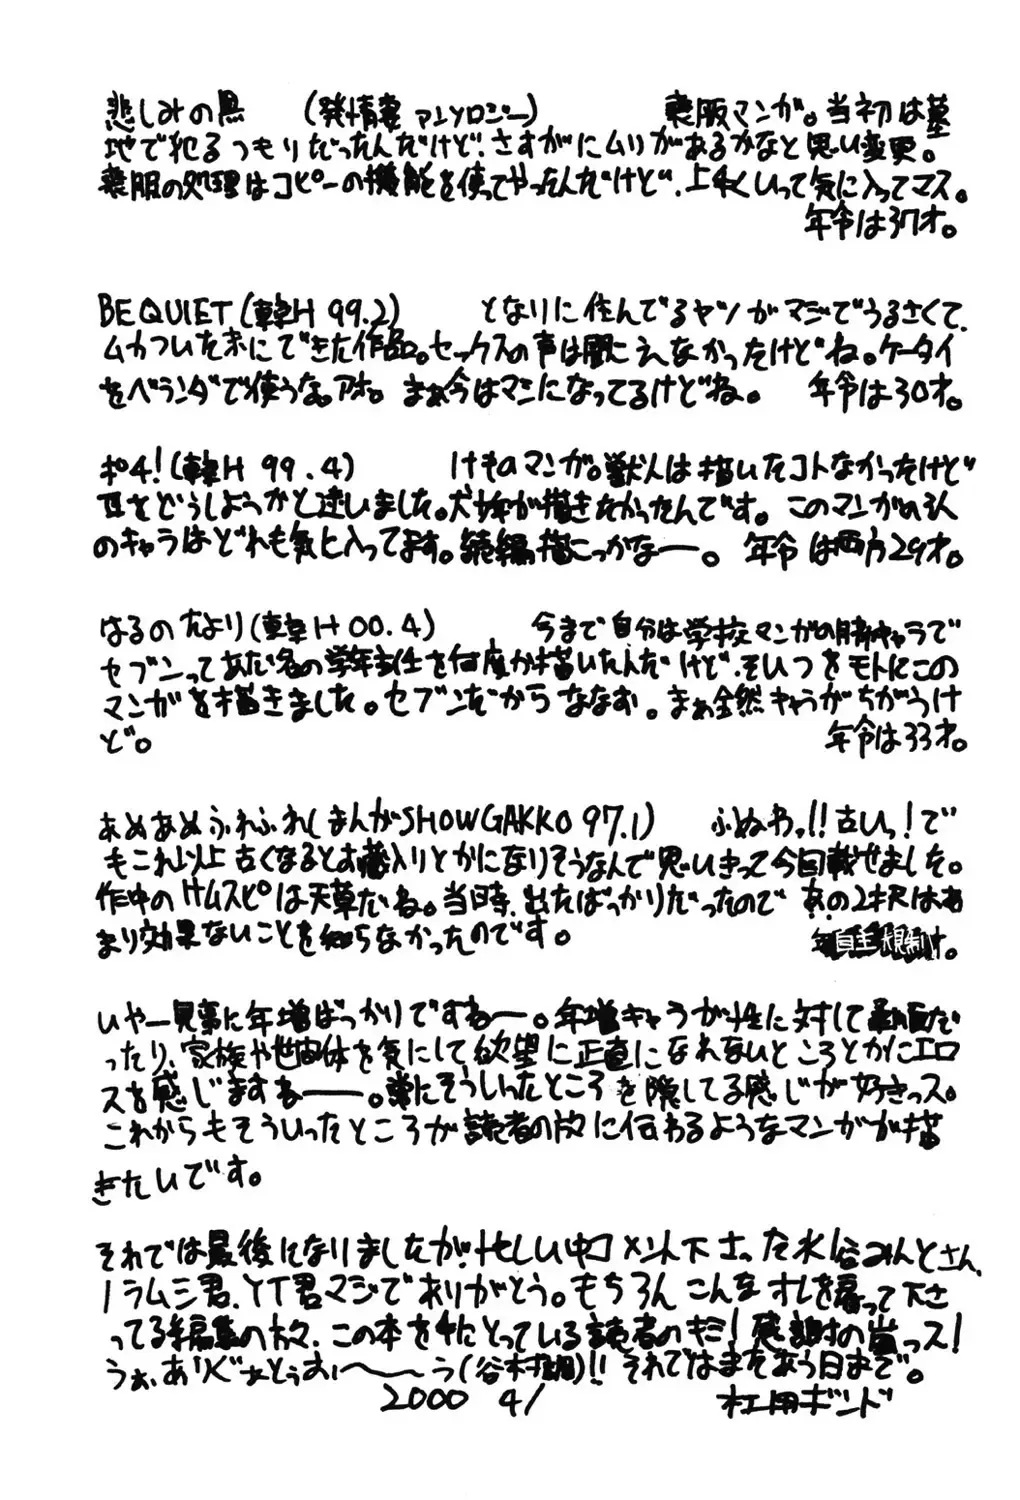 悲しみの黒 (発情妻 アンソロジー) 喪服マンガ。当初は墓
地で犯るつもりだったんだけど、さすがにムリがあるかなと思い変更。
喪服の処理はコピーの機能を使ってやったんだけど、上手くいって気に入ってマス。
年令は37才。
BE QUIET (華H 99.2) となりに住んでるヤツがマジでうるさくて、
ムカついた末にできた作品。セックスの声は聞こえなかったけどね。ケータイ
をベランダで使うな。アホ。まぁ今はマシになってるけどね。 年令は30才。
ポチ!(華H 99.4) けものマンガ。獣人は描いたコトなかったけど
耳をどうしようかと迷いました。犬娘が描きたかったんです。このマンガの3人
のキャラはどれも気に入ってます。続編描こっかなー。 年令は両方29才。
はるのたより(華H 00.4) 今まで自分は学校マンガの脇キャラで
セブンってあだ名の学年主任を何度か描いたんだけど、そいつをモトにこの
マンガを描きました。セブンだからななお。まぁ全然キャラがちがうけ
ど。 年令は33才。
あめあめふれふれ(まんがSHOWGAKKO 97.1) ふぬわっ!!古いっ!で
もこれ以上古くなるとお蔵入りとかになりそうなんで思いきって今回載せました。
作中のサムスピは天草だね。当時、出たばっかりだったので、あの2択はあ
まり効果ないことを知らなかったのです。 年自主規制才。
いやー見事に年増ばっかりですねー。年増キャラが性に対して素直だ
ったり、家族や世間体を気にして欲望に正直になれないところとかにエロ
スを感じますねー。常にそういったところを隠してる感じが好きっス。
これからもそういったところが読者の方に伝わるようなマンガが描
きたいです。
それでは最後になりましたが、忙しい中コメント下さった水谷みんとさん、
ノラムシ君、YT君マジでありがとう。もちろんこんなオレを雇って下さ
ってる編集の方々、この本を手にとっている読者のキミ!感謝の嵐っス!
うぉ、ありぐぁとぅおぉ〜〜う(谷村)!!それではまたあう日まで。
2000 4/ 杜用ボンド